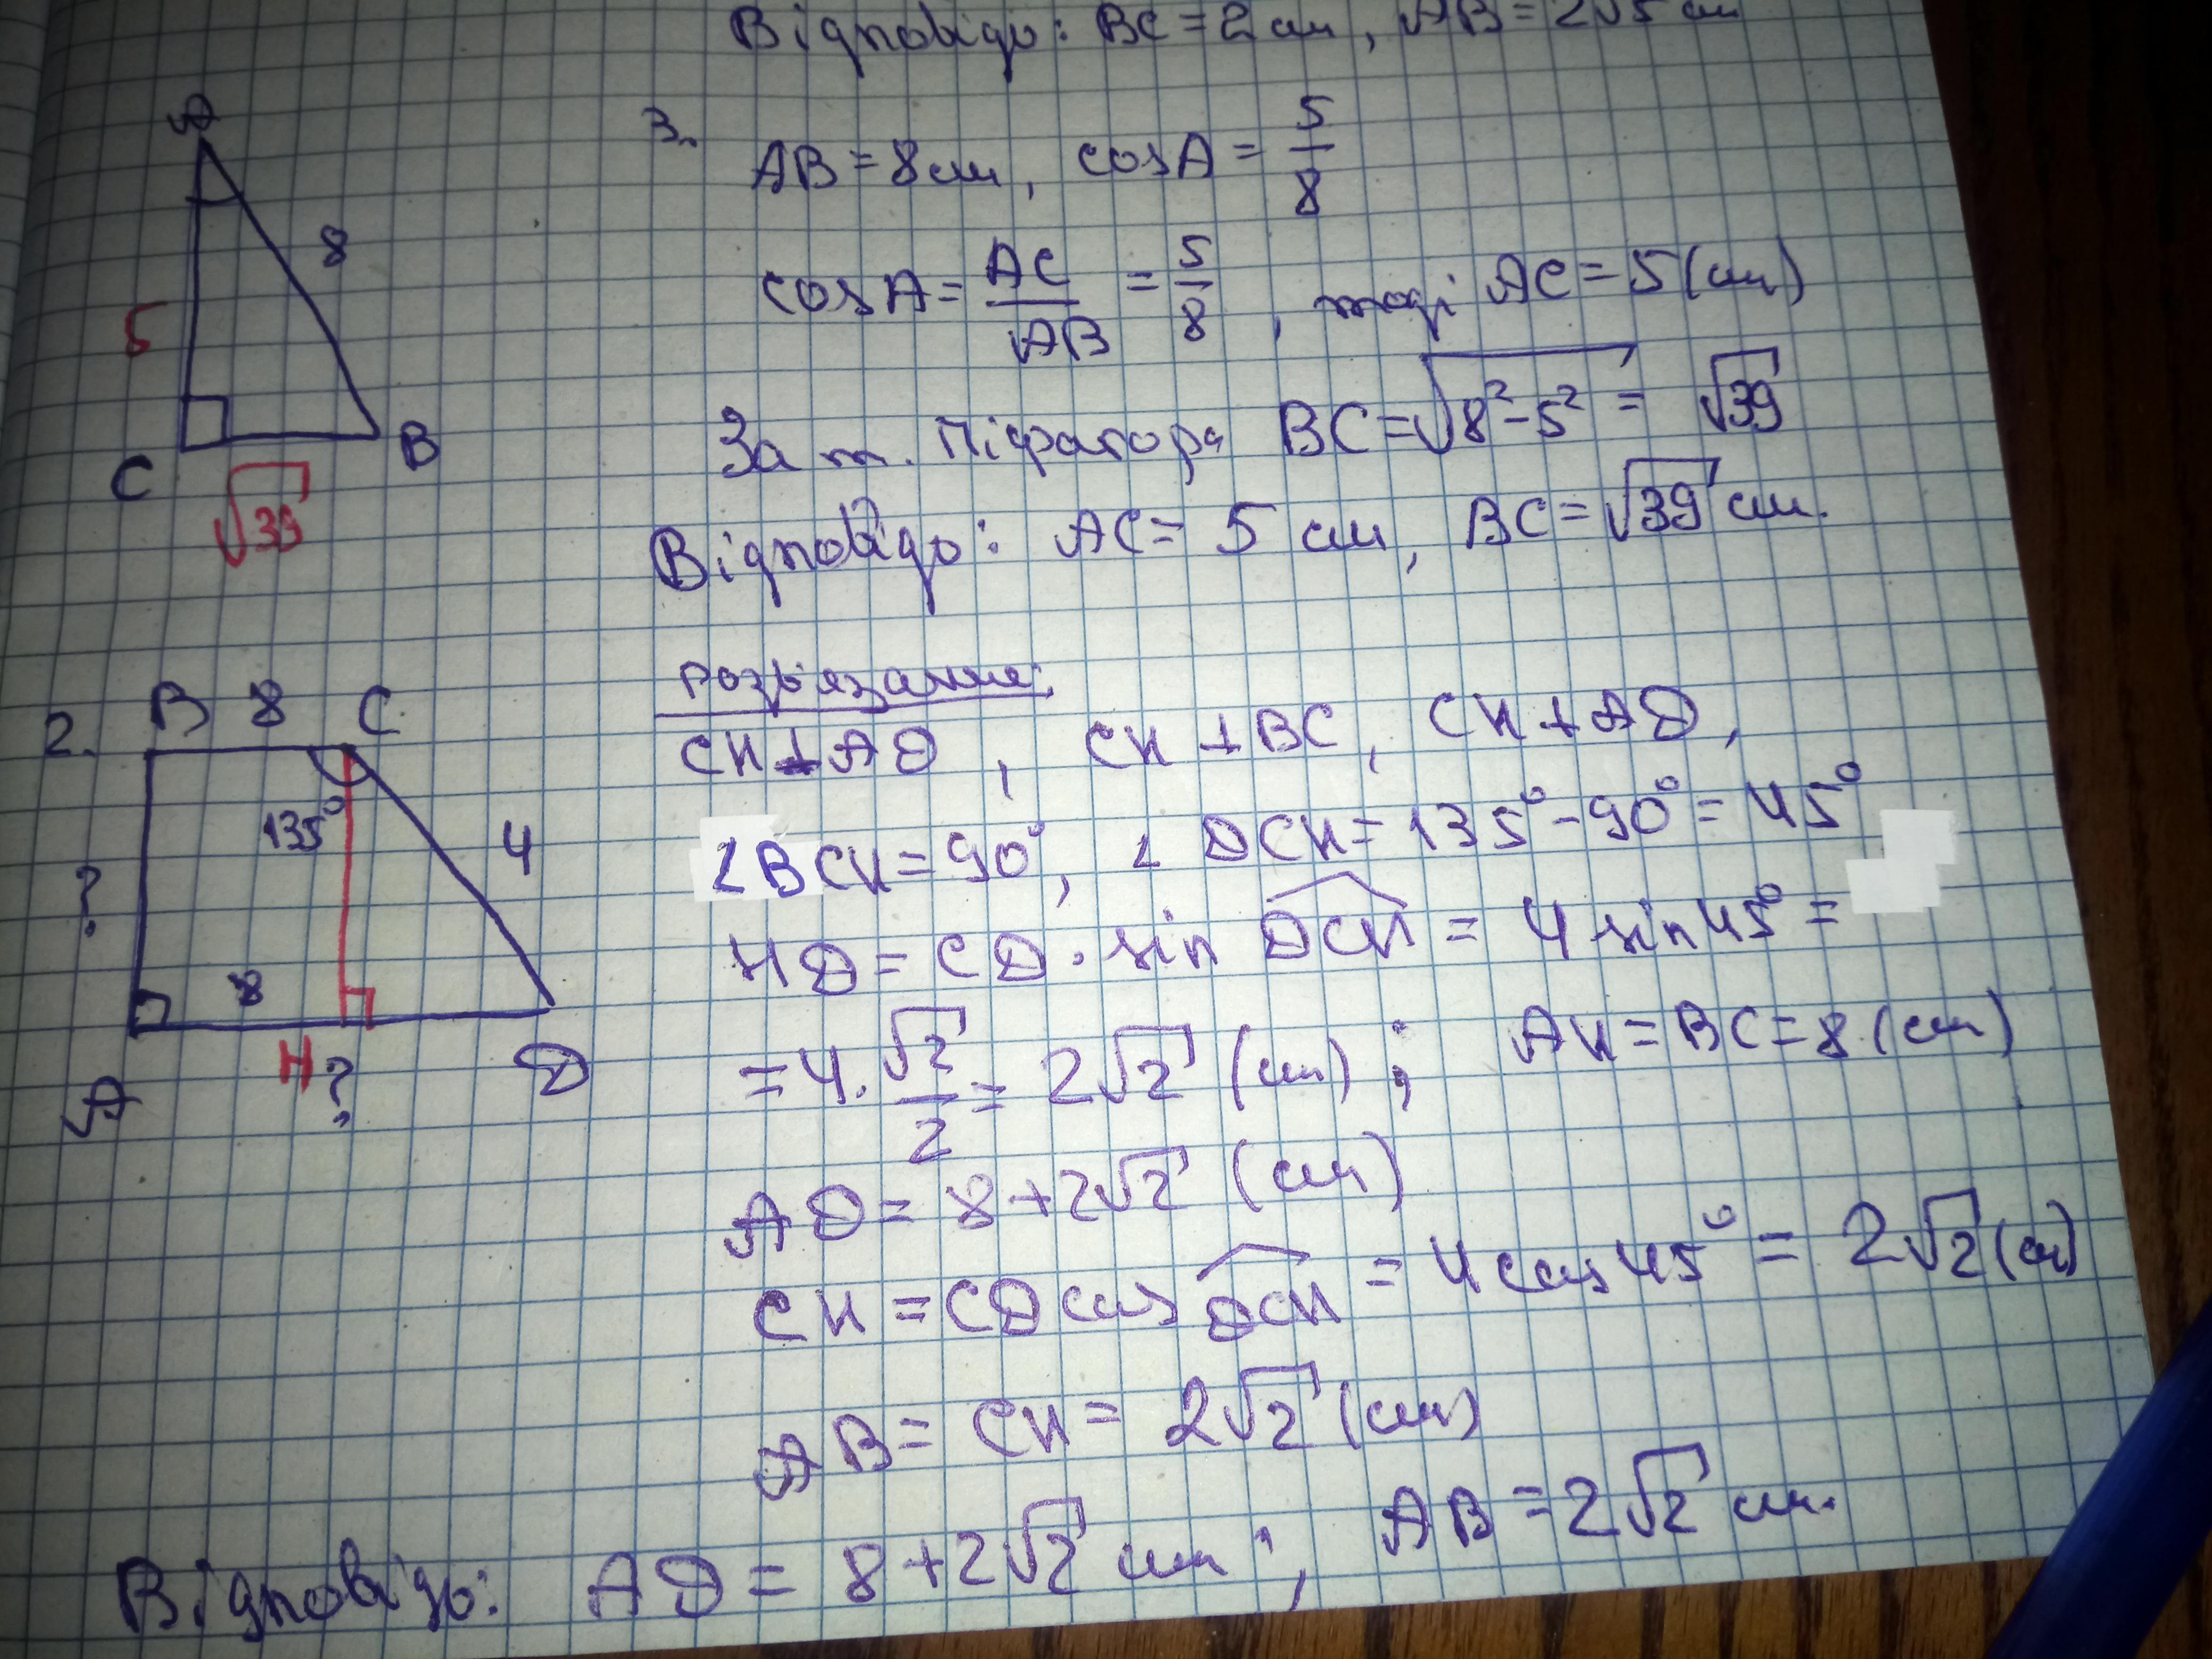 Відповідь: BC = 2 см, AB = 2√5 см
3.
AB = 8 см, cos A = 5/8
cos A = AC/AB = 5/8, тоді AC = 5 (см)
За т. Піфагора BC = √(8² - 5²) = √39
Відповідь: AC = 5 см, BC = √39 см.
A
8
5
C
B
√39
Розв'язання:
CH ⊥ AD, CH ⊥ BC, CH ⊥ AD,
∠BCH = 90°, ∠DCH = 135° - 90° = 45°
HD = CD · sin DCH = 4 sin 45° =
= 4 · √2/2 = 2√2 (см); AH = BC = 8 (см)
AD = 8 + 2√2 (см)
CH = CD cos DCH = 4 cos 45° = 2√2 (см)
AB = CH = 2√2 (см)
2.
B 8 C
135°
4
?
8
A
H
?
D
Відповідь: AD = 8 + 2√2 см; AB = 2√2 см.